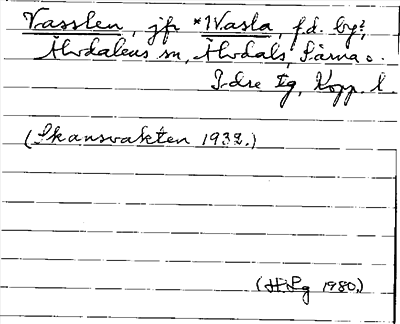 Vasslen, jfr *1Vasla, f.d. by?,
Älvdalens sn, Älvdals, Särna o.
Idre tg, Kopp. l.
(Skansvakten 1932.)
(HLg 1980.)